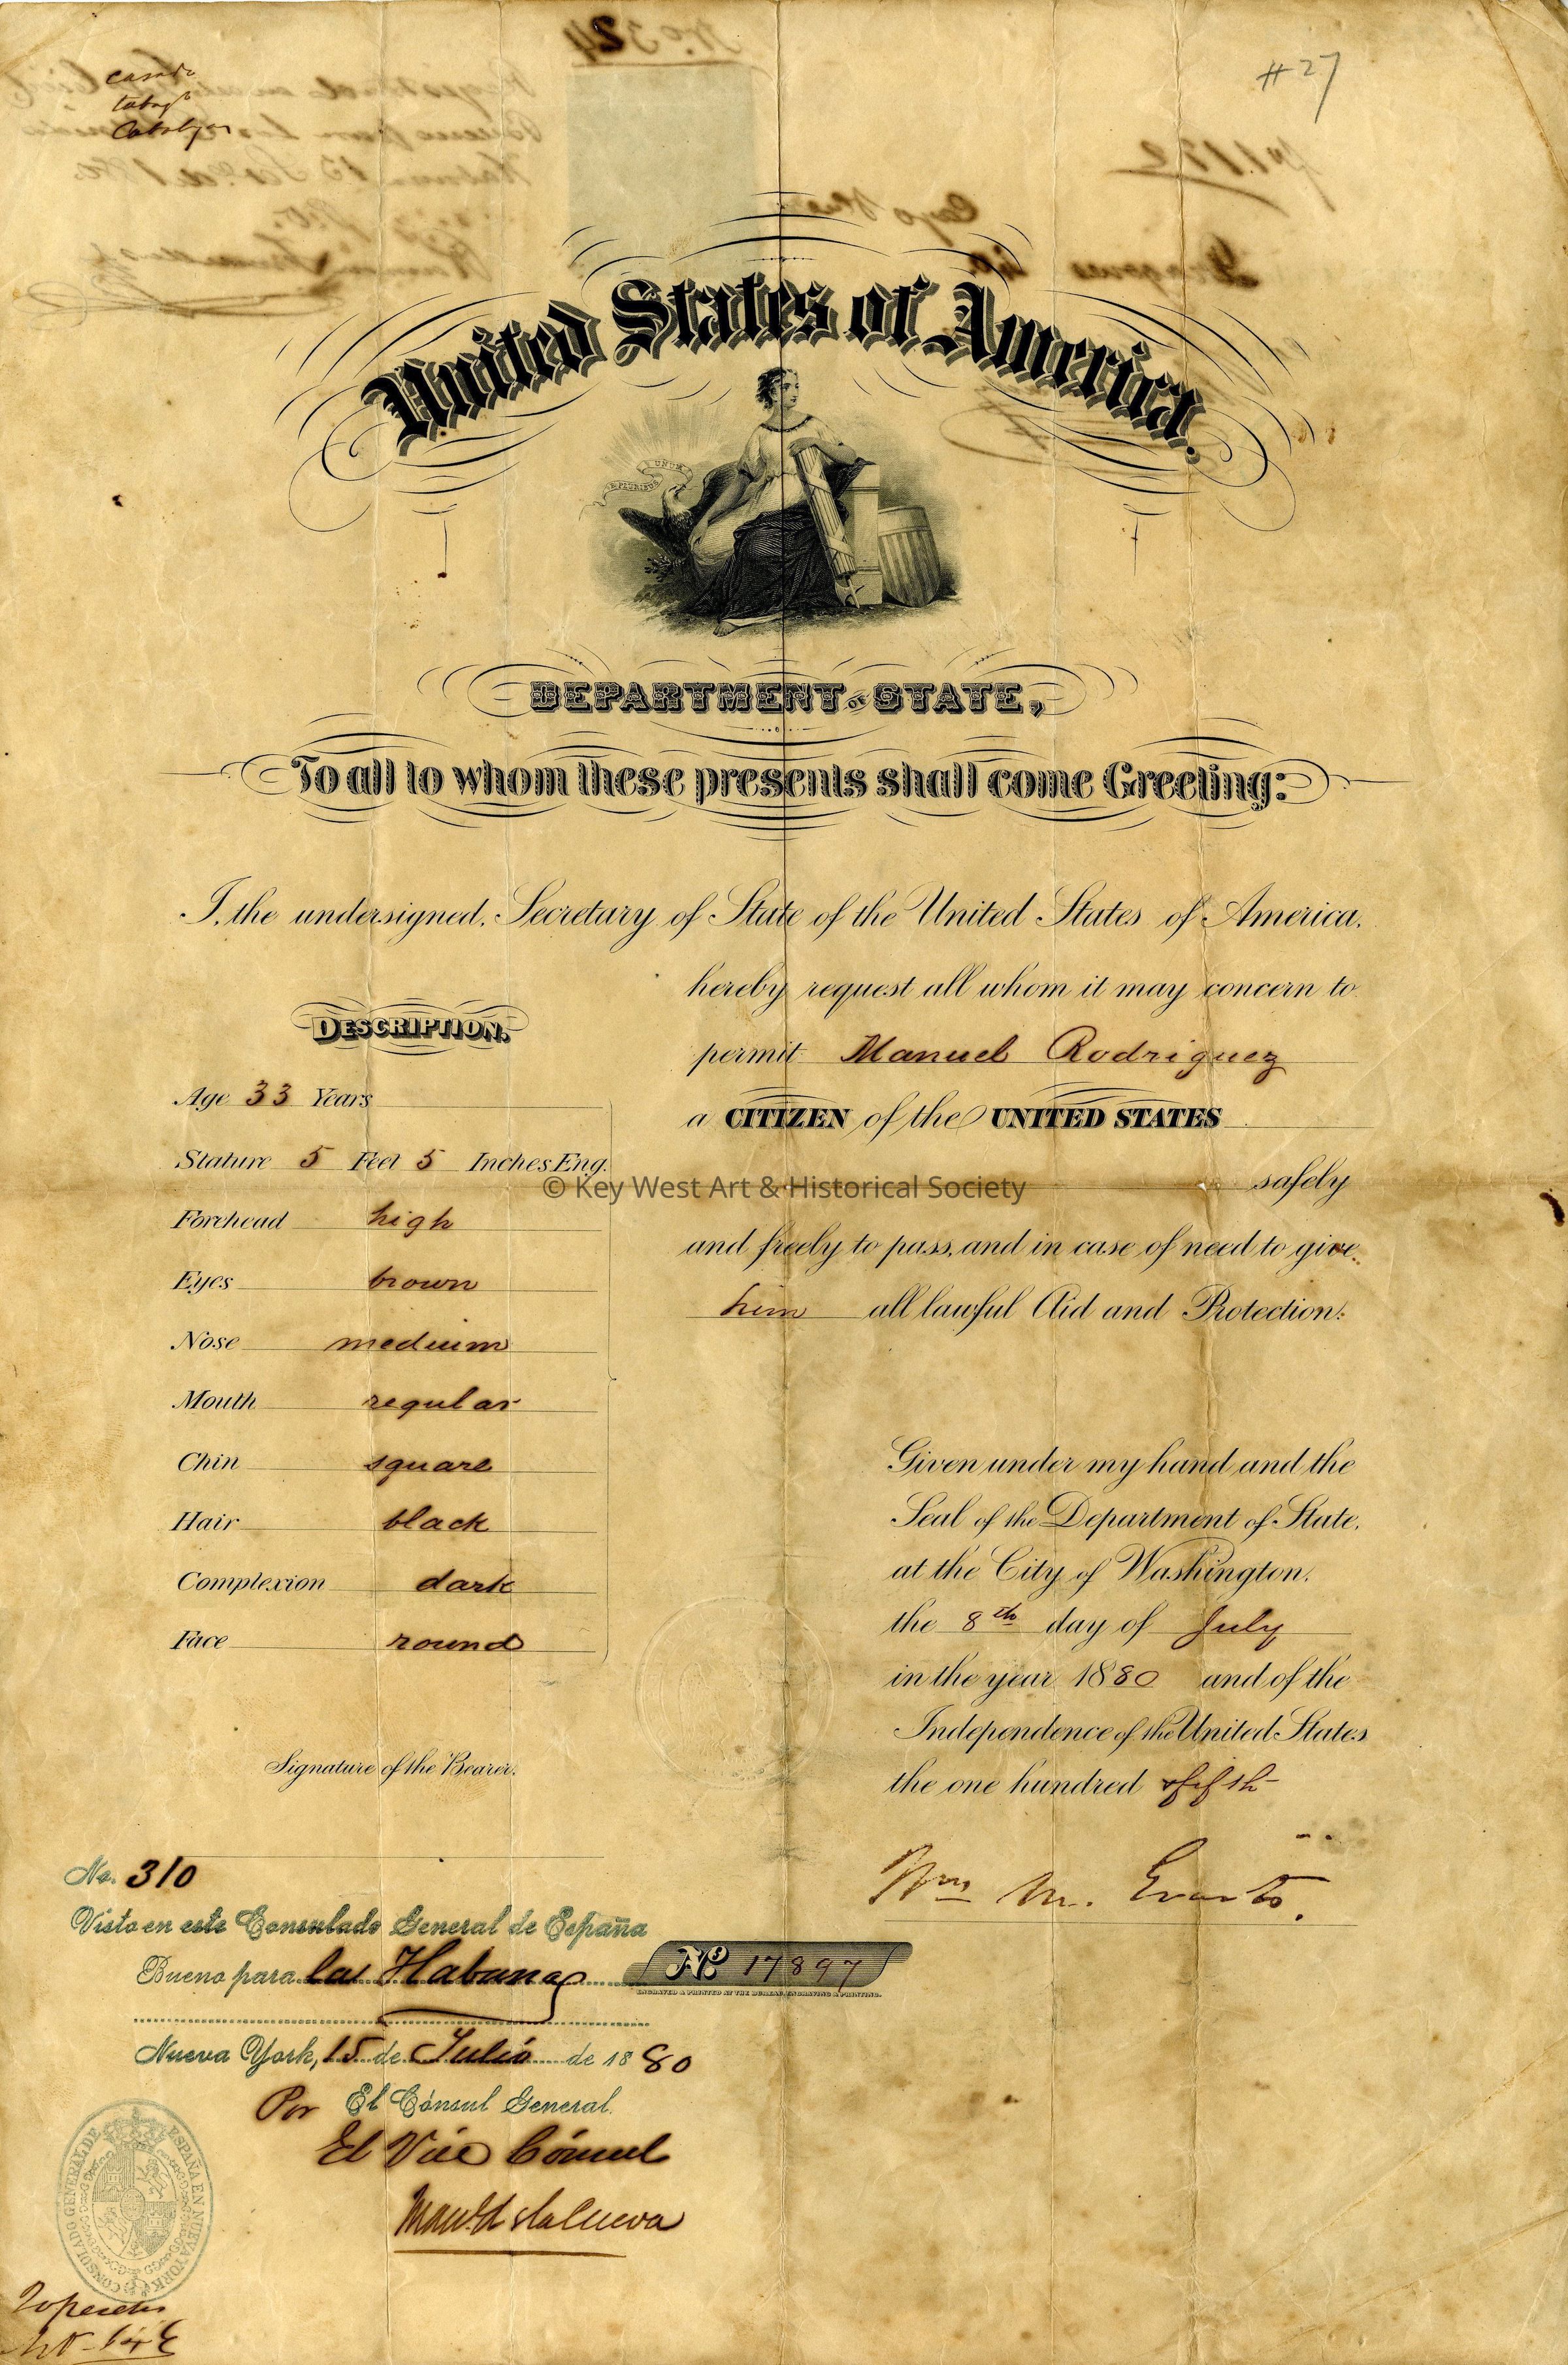 Nº 324
casado
#27
United States of America.
E PLURIBUS UNUM
DEPARTMENT OF STATE,
To all to whom these presents shall come Greeting:
I, the undersigned, Secretary of State of the United States of America,
hereby request all whom it may concern to
permit Manuel Rodriguez
a CITIZEN of the UNITED STATES
safely
and freely to pass, and in case of need to give
him all lawful Aid and Protection.
DESCRIPTION.
Age 33 Years
Stature 5 Feet 5 Inches Eng.
Forehead high
Eyes brown
Nose medium
Mouth regular
Chin square
Hair black
Complexion dark
Face round
© Key West Art & Historical Society
Given under my hand and the
Seal of the Department of State,
at the City of Washington,
the 8th day of July
in the year 1880 and of the
Independence of the United States
the one hundred fifth
Wm M. Evarts.
Signature of the Bearer.
No. 310
Visto en este Consulado General de España
Bueno para la Habana
Nueva York, 15 de Julio de 1880
Por El Cónsul General.
El Vice Cónsul
Nº 17897
ENGRAVED & PRINTED AT THE BUREAU, ENGRAVING & PRINTING.
CONSULADO GENERAL DE ESPAÑA EN NUEVA YORK